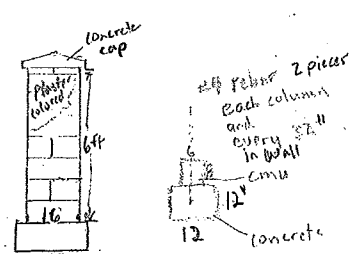 concrete
cap
Plaster
colored
6ft
16
#4 rebar 2 pieces
Each column
and
every 32"
in wall
6
CMU
12"
12
concrete